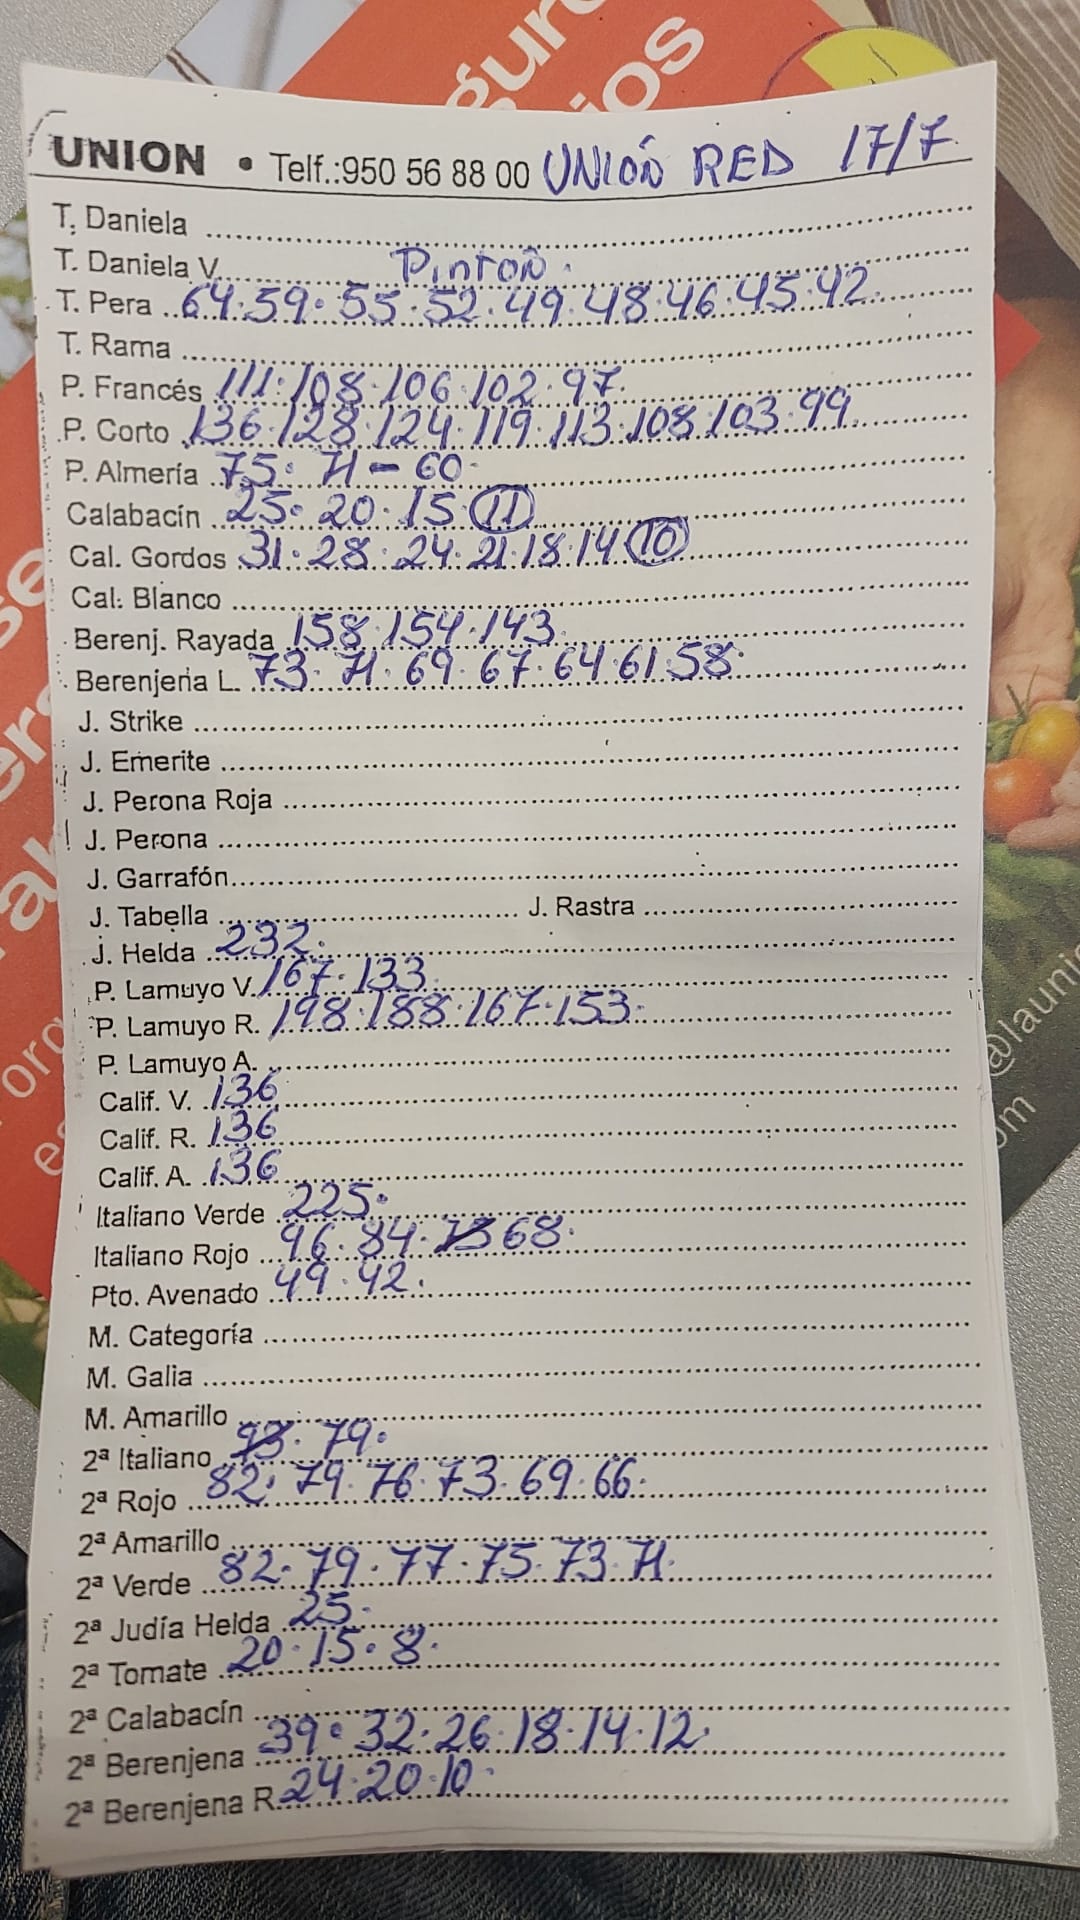 guro
ios
UNION • Telf.:950 56 88 00 UNIÓN RED 17/7.
T. Daniela
T. Daniela V. Pintón.
T. Pera 64.59.55.52.49.48.46.45.42.
T. Rama
P. Francés 111.108.106.102.97.
P. Corto 136.128.124.119.113.108.103.99.
P. Almería 75. 71-60.
Calabacín 25.20.15.11
Cal. Gordos 31.28.24.21.18.14.10
Cal. Blanco
Berenj. Rayada 158.154.143.
Berenjena L. 73.71.69.67.64.61.58.
J. Strike
J. Emerite
J. Perona Roja
J. Perona
J. Garrafón
J. Tabella J. Rastra
J. Helda 232.
P. Lamuyo V. 167.133.
P. Lamuyo R. 198.188.167.153.
P. Lamuyo A.
Calif. V. 136
Calif. R. 136
Calif. A. 136
Italiano Verde 225.
Italiano Rojo 96.84.73 68.
Pto. Avenado 49.42.
M. Categoría
M. Galia
M. Amarillo
2ª Italiano 93.79.
2ª Rojo 82.79.76.73.69.66.
2ª Amarillo
2ª Verde 82.79.77.75.73.71.
2ª Judía Helda 25.
2ª Tomate 20.15.8.
2ª Calabacín
2ª Berenjena 39.32.26.18.14.12.
2ª Berenjena R. 24.20.10.
@launi
om